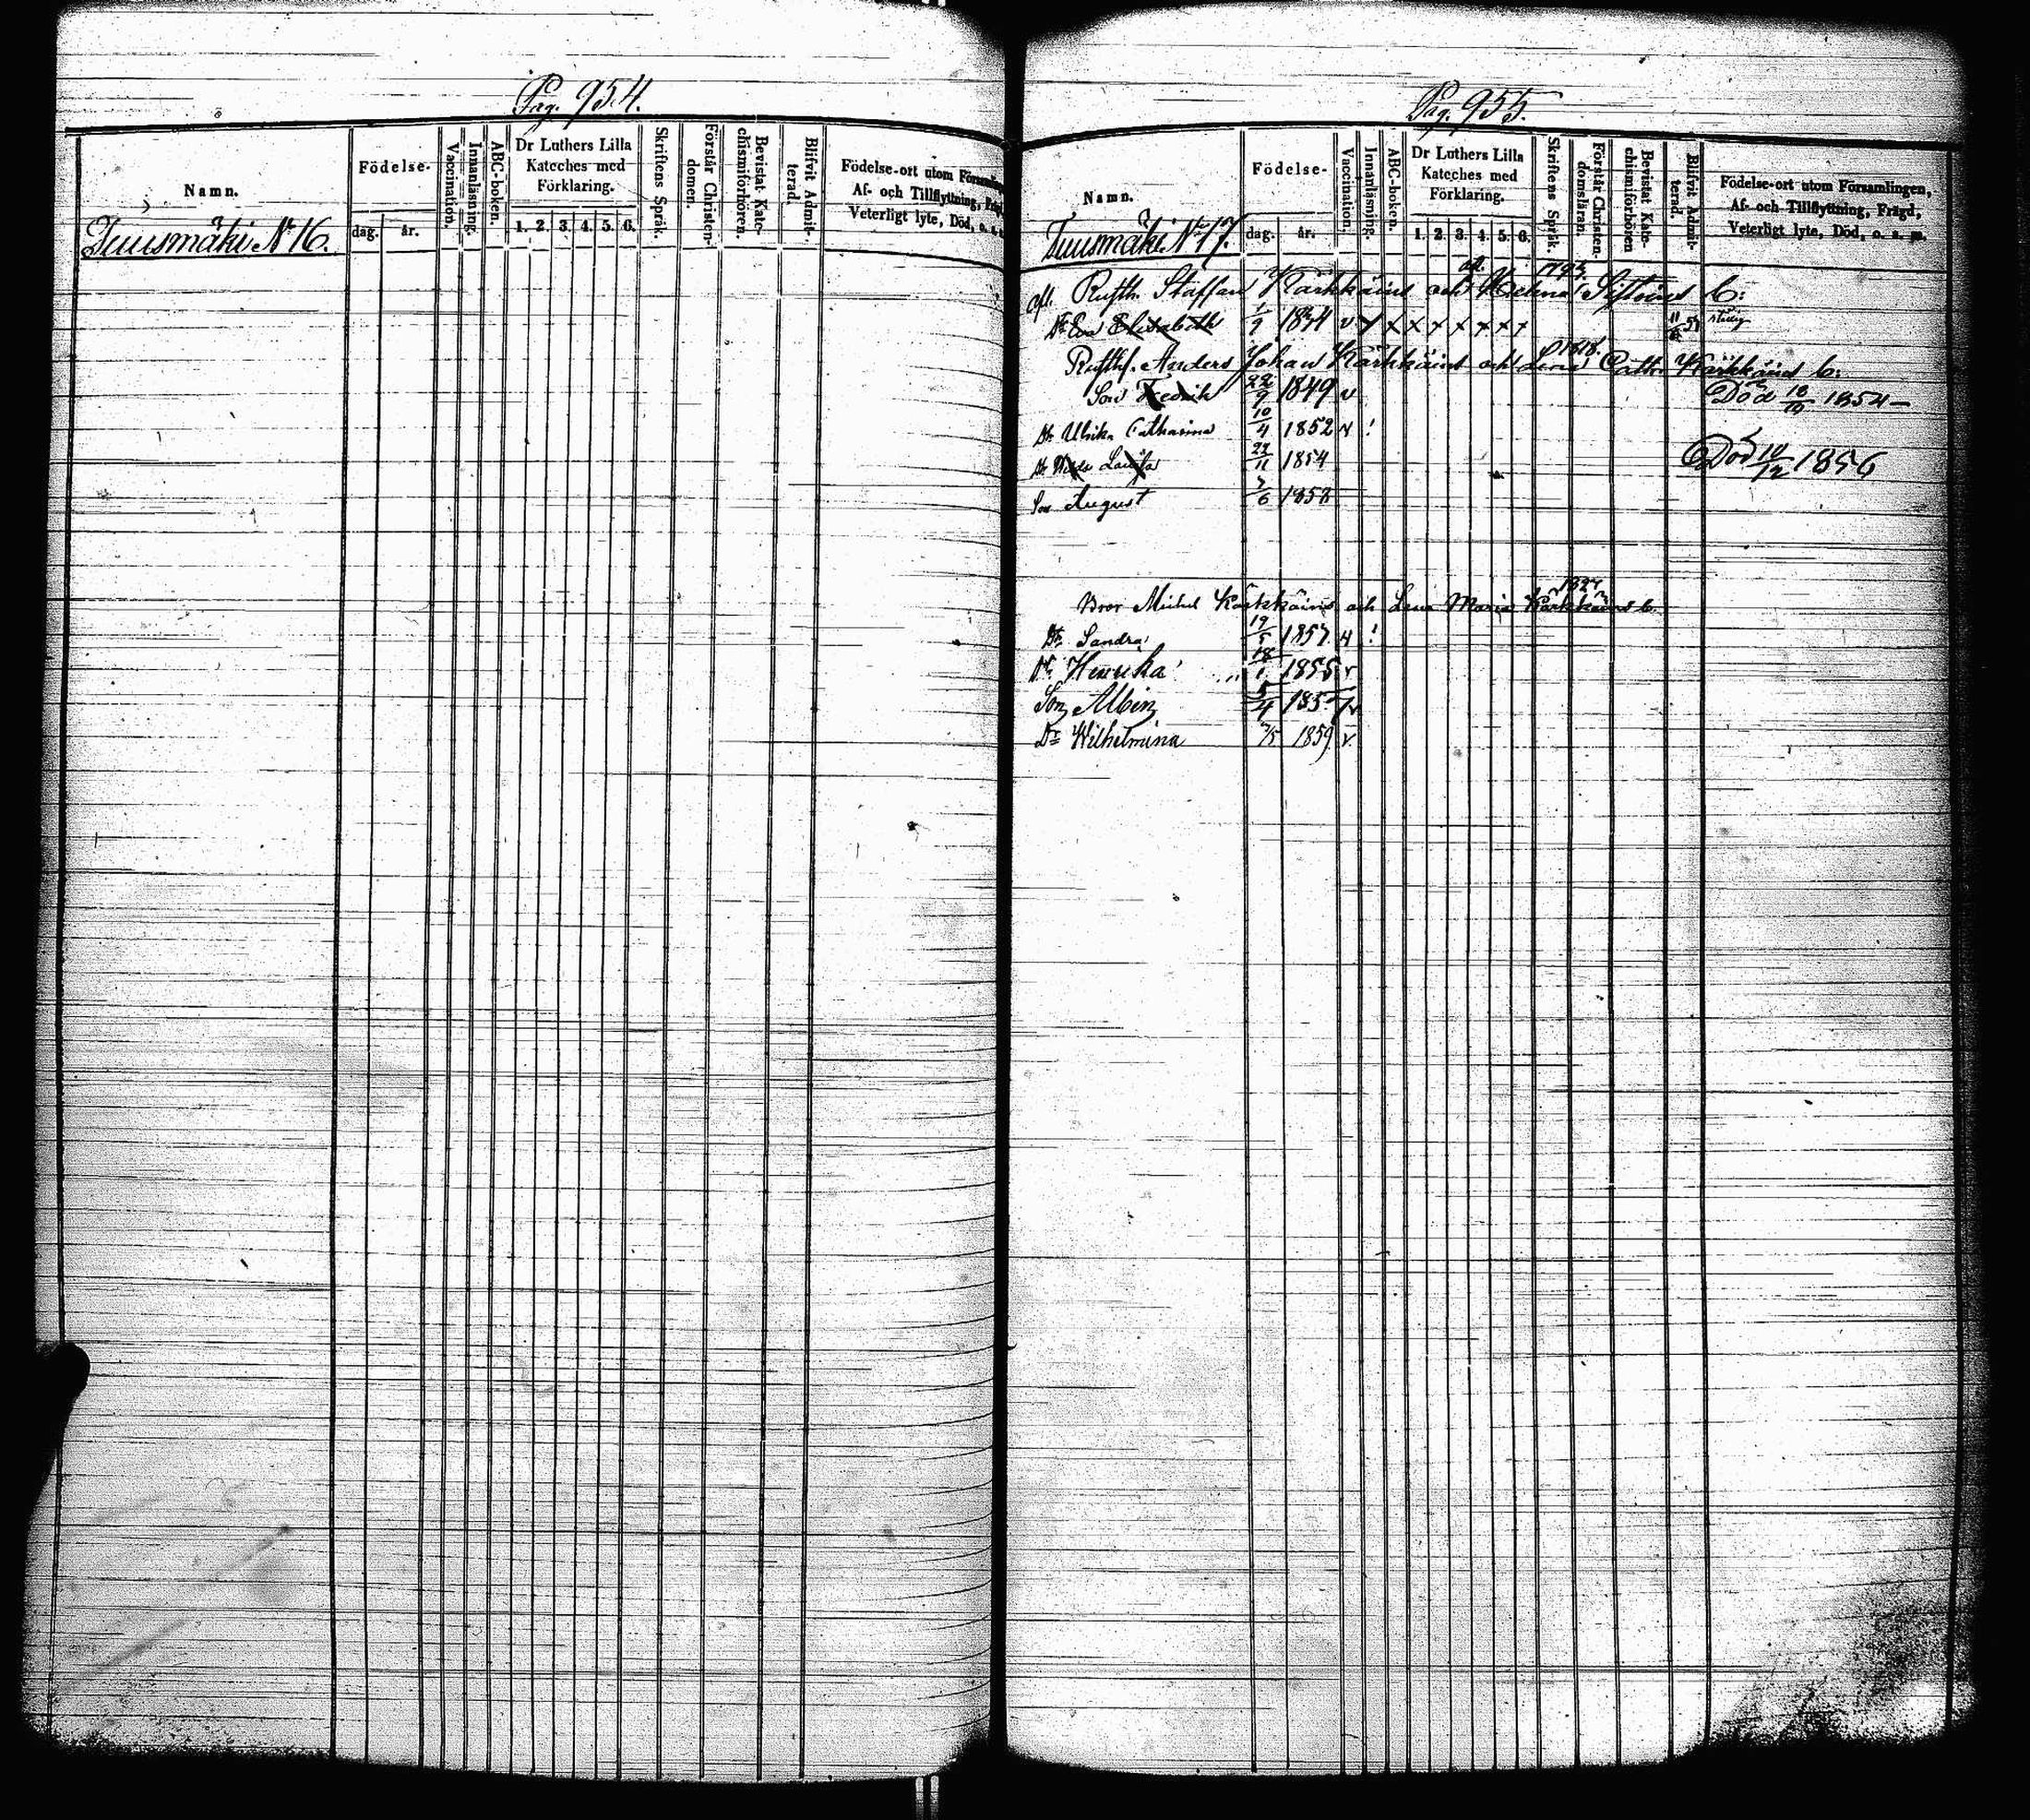 Pag. 954.
Namn.
Födelse-
dag.
år.
Vaccination.
Innanläsning.
ABC-boken.
Dr Luthers Lilla
Kateches med
Förklaring.
1. 2. 3. 4. 5. 6.
Skriftens Språk.
Förstår Christen-
domen.
Bevistat Kate-
chismiförhören.
Blifvit Admit-
terad.
Födelse-ort utom
Af- och Tillflyttning,
Veterligt lyte, Död, o. s.
Tuusmäki N 16.
Pag. 955.
Namn.
Födelse-
dag.
år.
Vaccination.
Innanläsning.
ABC-boken.
Dr Luthers Lilla
Kateches med
Förklaring.
1. 2. 3. 4. 5. 6.
Skriftens Språk.
Förstår Christen-
domsläran.
Bevistat Kate-
chismiförhören
Blifvit Admit-
terad.
Födelse-ort utom Församlingen,
Af- och Tillflyttning, Frägd,
Veterligt lyte, Död, o. s. m.
Tuusmäki No 17.
Staffan Kärkkäin och Helena
Dr Eva Elisabeth 1/9 1834 v x x x x x x x
Anders Johan Kärkkäin och Lena Cath. Kärkkäin 1818.
Son Fredrik 22/9 1849 v Död 1854
Dr Ulrika Catharina 10/4 1852 v !
Lovisa 22/11 1854 Död 10/12 1856
Son August 7/6 1858
Bror Michel Kärkkäin och Lena Maria Kärkkäin
Dr Sandra 19/5 1857 v !
Dr Henrika 18/1 1855 v
Son Albin 5/4 1857 v
Dr Wilhelmina 7/5 1859 v